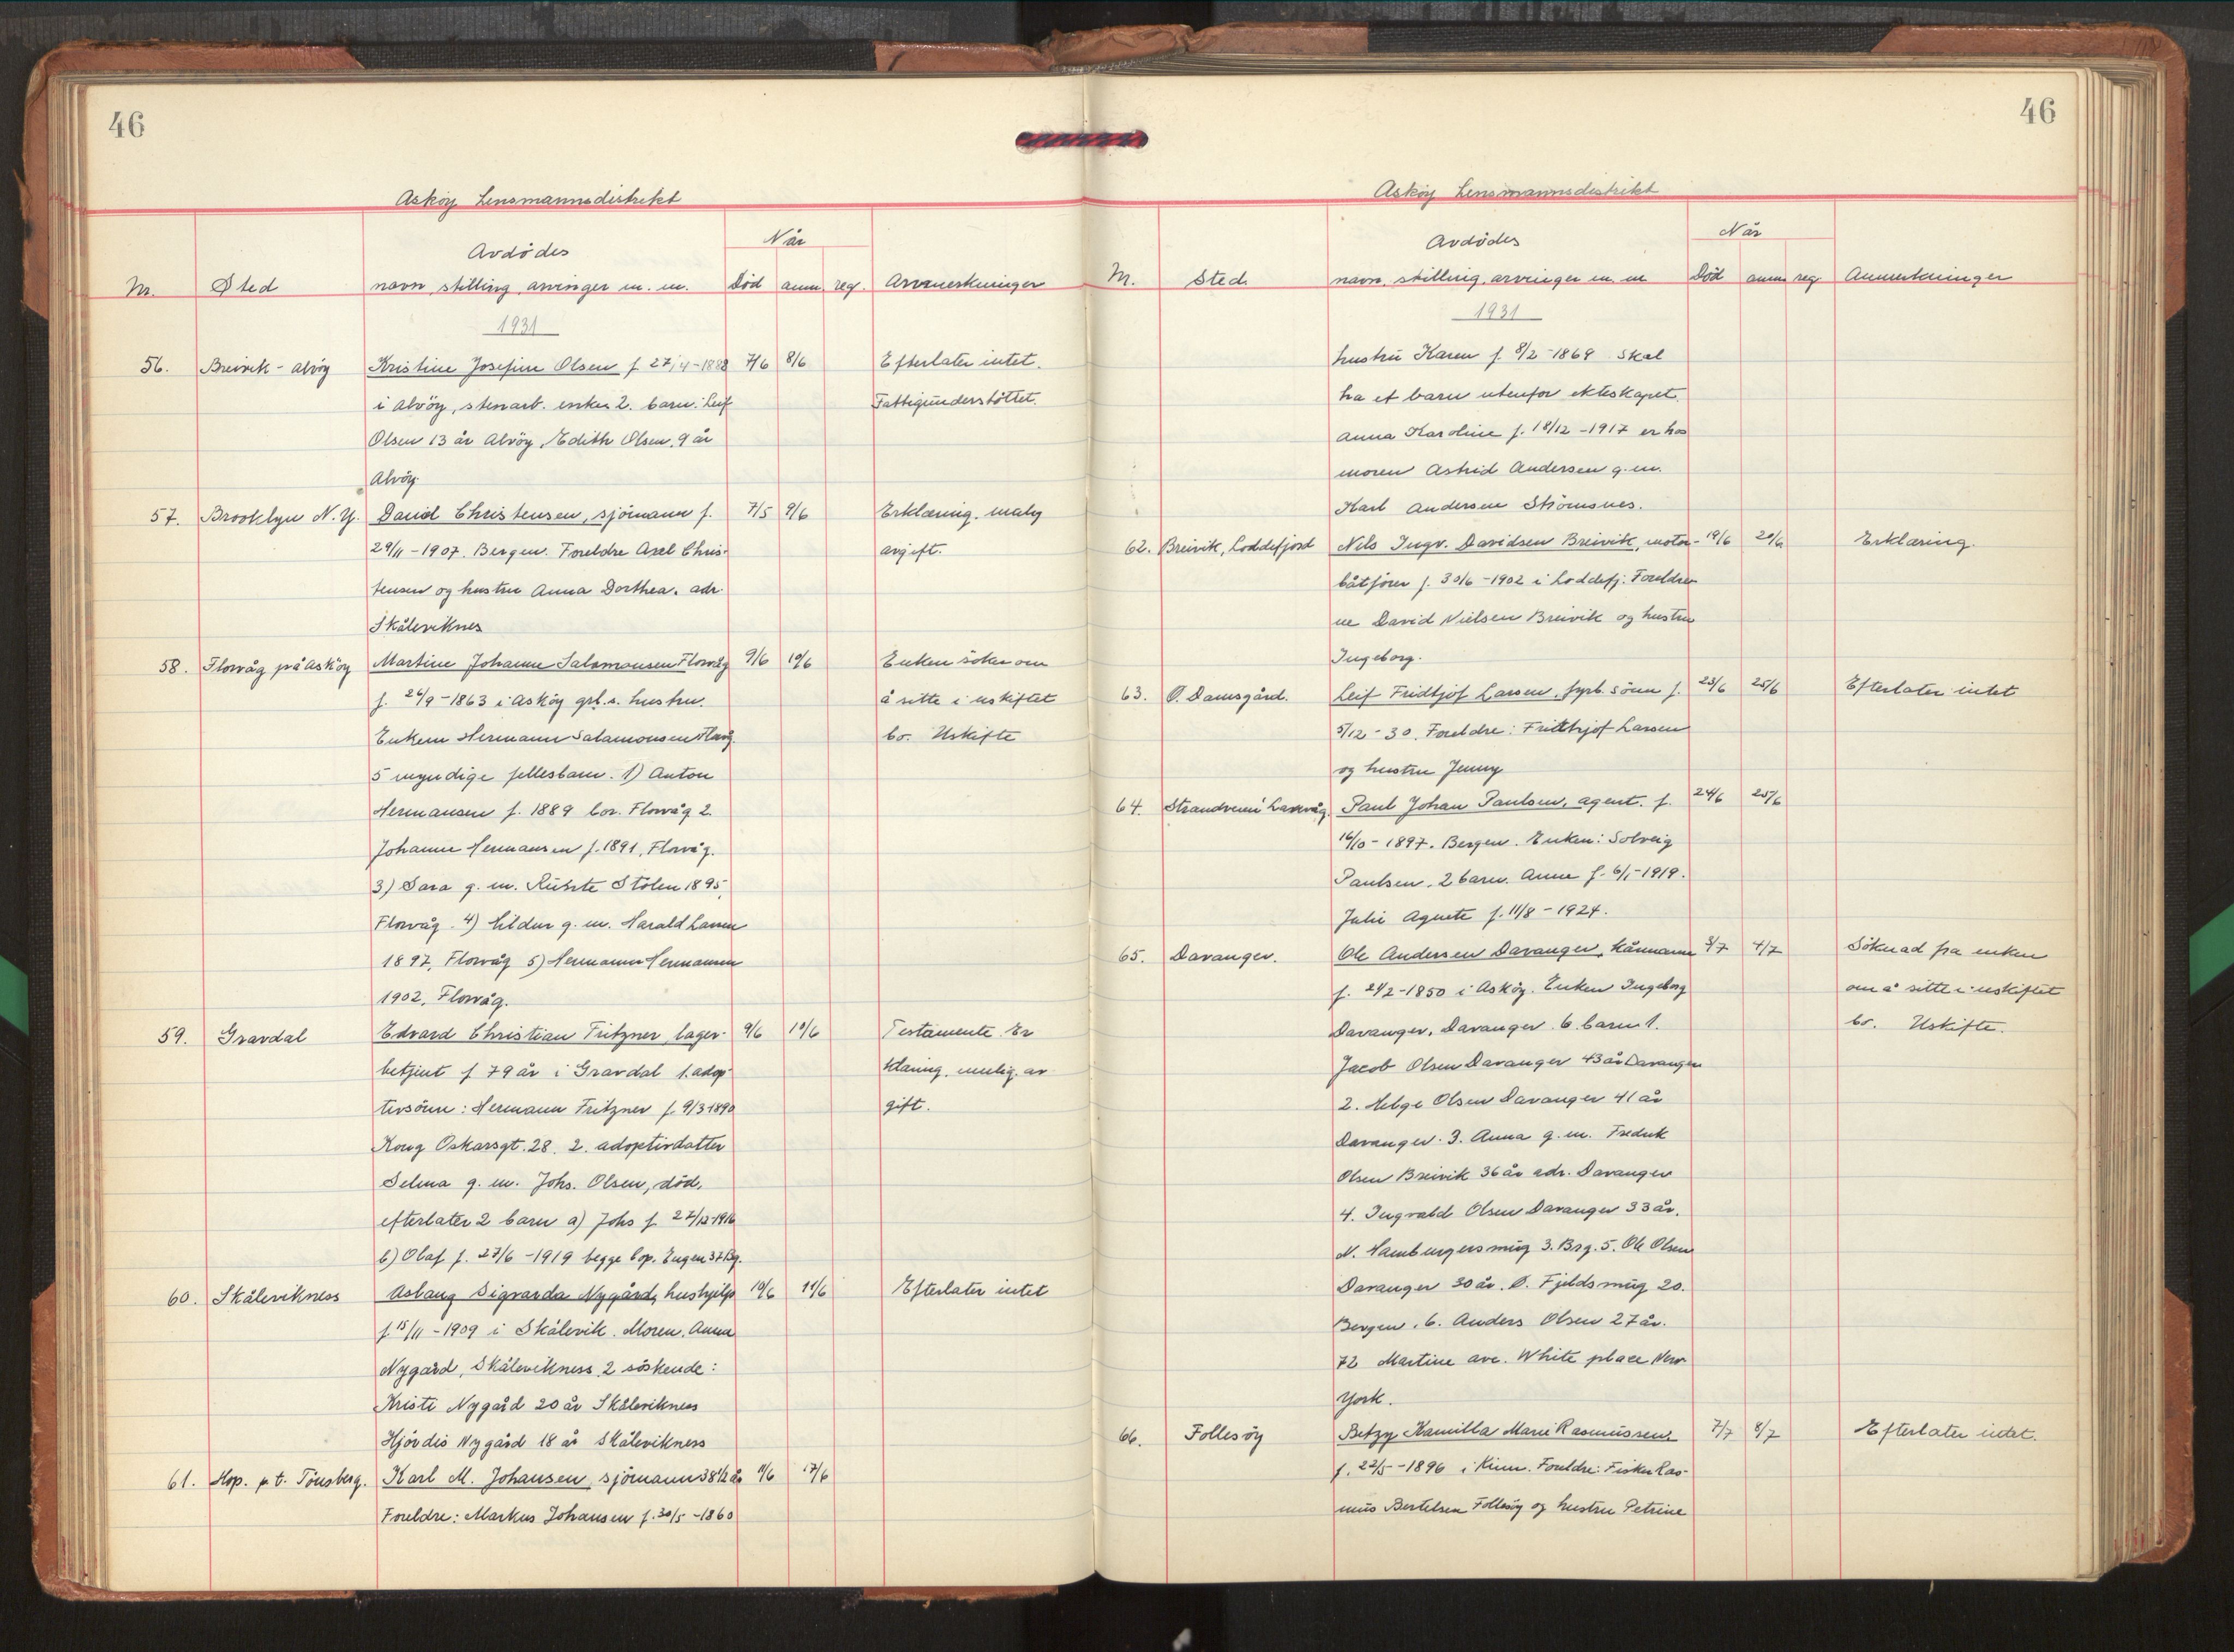 46
Askøy Lensmannsdistrikt
Avdödes
Når
Nr. Sted navn, stilling, arvinger m. m. Död anm. reg. Anmerkninger
1931
56. Breivik - Alvöy Kristine Josefine Olsen f. 27/4-1888 7/6 8/6 Efterlater intet.
i Alvöy, stenarb. enke, 2. barn: Leif Fattigunderstöttet.
Olsen 13 år Alvöy, Edith Olsen, 9 år
Alvöy.
57. Brooklyn N. Y. David Christensen, sjömann f. 7/5 9/6 Erklæring. mulig
29/11-1907. Bergen. Foreldre Axel Chris- avgift.
tensen og hustru Anna Dorthea. adr.
Skåleviknes
58. Florvåg på Askøy Martine Johanne Salamonsen Florvåg 9/6 10/6 Enken söker om
f. 26/9-1863 i Askøy grb.s. hustru. å sitte i uskiftet
Enkem. Hermann Salamonsen Florvåg. bo. Uskifte
5 myndige fellesbarn. 1) Anton
Hermansen f. 1889 bor. Florvåg 2.
Johanne Hermansen f. 1891, Florvåg.
3) Sara g. m. Stolen 1895,
Florvåg. 4) Hildur g. m. Harald Larsen
1897, Florvåg 5) Hermann Hermansen
1902, Florvåg.
59. Gravdal Edvard Christian Fritzner, lager- 9/6 10/6 Testamente. Er
betjent f 79 år i Gravdal 1. adop- klæring. mulig. av
tivsönn: Hermann Fritzner f. 9/3 1890 gift.
Kong Oskarsgt. 28. 2. adoptivdatter
Selma g. m. Johs. Olsen, död,
efterlater 2 barn a) Johs f. 27/12-1916
b) Olaf f. 27/6-1919 begge bop. Engen 37 Bg.
60. Skålevikness Aslaug Sigvarda Nygård, hushjelp 10/6 11/6 Efterlater intet
f. 15/11-1909 i Skålevik. Moren. Anna
Nygård, Skålevikness, 2 söskende:
Kristi Nygård 20 år Skålevikness
Hjördis Nygård 18 år Skålevikness
61. Hop. p t. Tönsberg. Karl M. Johansen, sjömann 38 1/2 år 11/6 17/6
Foreldre: Markus Johansen f. 30/5-1860
46
Askøy Lensmannsdistrikt
Avdödes
Når
Nr. Sted navn, stilling, arvinger m. m Död anm. reg. Anmerkninger
1931
hustru Karen f. 8/2-1869. Skal
ha et barn utenfor ekteskapet.
Anna Karoline f. 18/12-1917 er hos
moren Astrid Andersen g. m.
Karl Andersen Strömsnes.
62. Breivik, Loddefjord Nils Ingv. Davidsen Breivik, motor- 19/6 20/6 Erklæring.
båtförer f. 30/6-1902 i Loddefj. Foreldre
ne David Nielsen Breivik og hustru
Ingeborg.
63. Ö. Damsgård. Leif Fridtjof Larsen, fyrb. sönn f. 23/6 25/6 Efterlater intet
5/12-30. Foreldre: Fridthjof Larsen
og hustru Jenny
64. Strandveien Laksevåg. Paul Johan Paulsen, agent. f. 24/6 25/6
16/10-1897. Bergen. Enken: Solveig
Paulsen. 2 barn. Anne f. 6/1-1919.
Julie Agnete f. 11/8-1924.
65. Davanger. Ole Andersen Davanger, kårmann 3/7 4/7 Söknad fra enken
f. 24/2-1850 i Askøy. Enken Ingeborg om å sitte i uskiftet
Davanger, Davanger. 6. barn 1. bo. Uskifte.
Jacob Olsen Davanger 43 år Davanger
2. Helge Olsen Davanger 41 år
Davanger. 3. Anna g. m. Fredrik
Olsen Breivik 36 år adr. Davanger
4. Ingvald Olsen Davanger 33 år.
N. Hamburgersmug 3. Brg. 5. Ole Olsen
Davanger 30 år. Ö. Fjeldsmug 20.
Bergen. 6. Anders Olsen 27 år.
72 Martine ave. White place New
York.
66. Follesöy Betzy Kamilla Marie Rasmussen 7/7 8/7 Efterlater intet.
f. 22/5-1896 i Kinn. Foreldre: Fisker Ras-
mus Bertelsen Follesöy og hustru Petrine